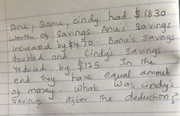 Anu, Banu, Cindy had $1830
worth of savings. Anu's Savings
increased by $4.70. Banu's Savings
doubled and Cindy's savings
reduced by $125. In the
end they have equal amount
of money. What was Cindy's
Saving after the deduction?